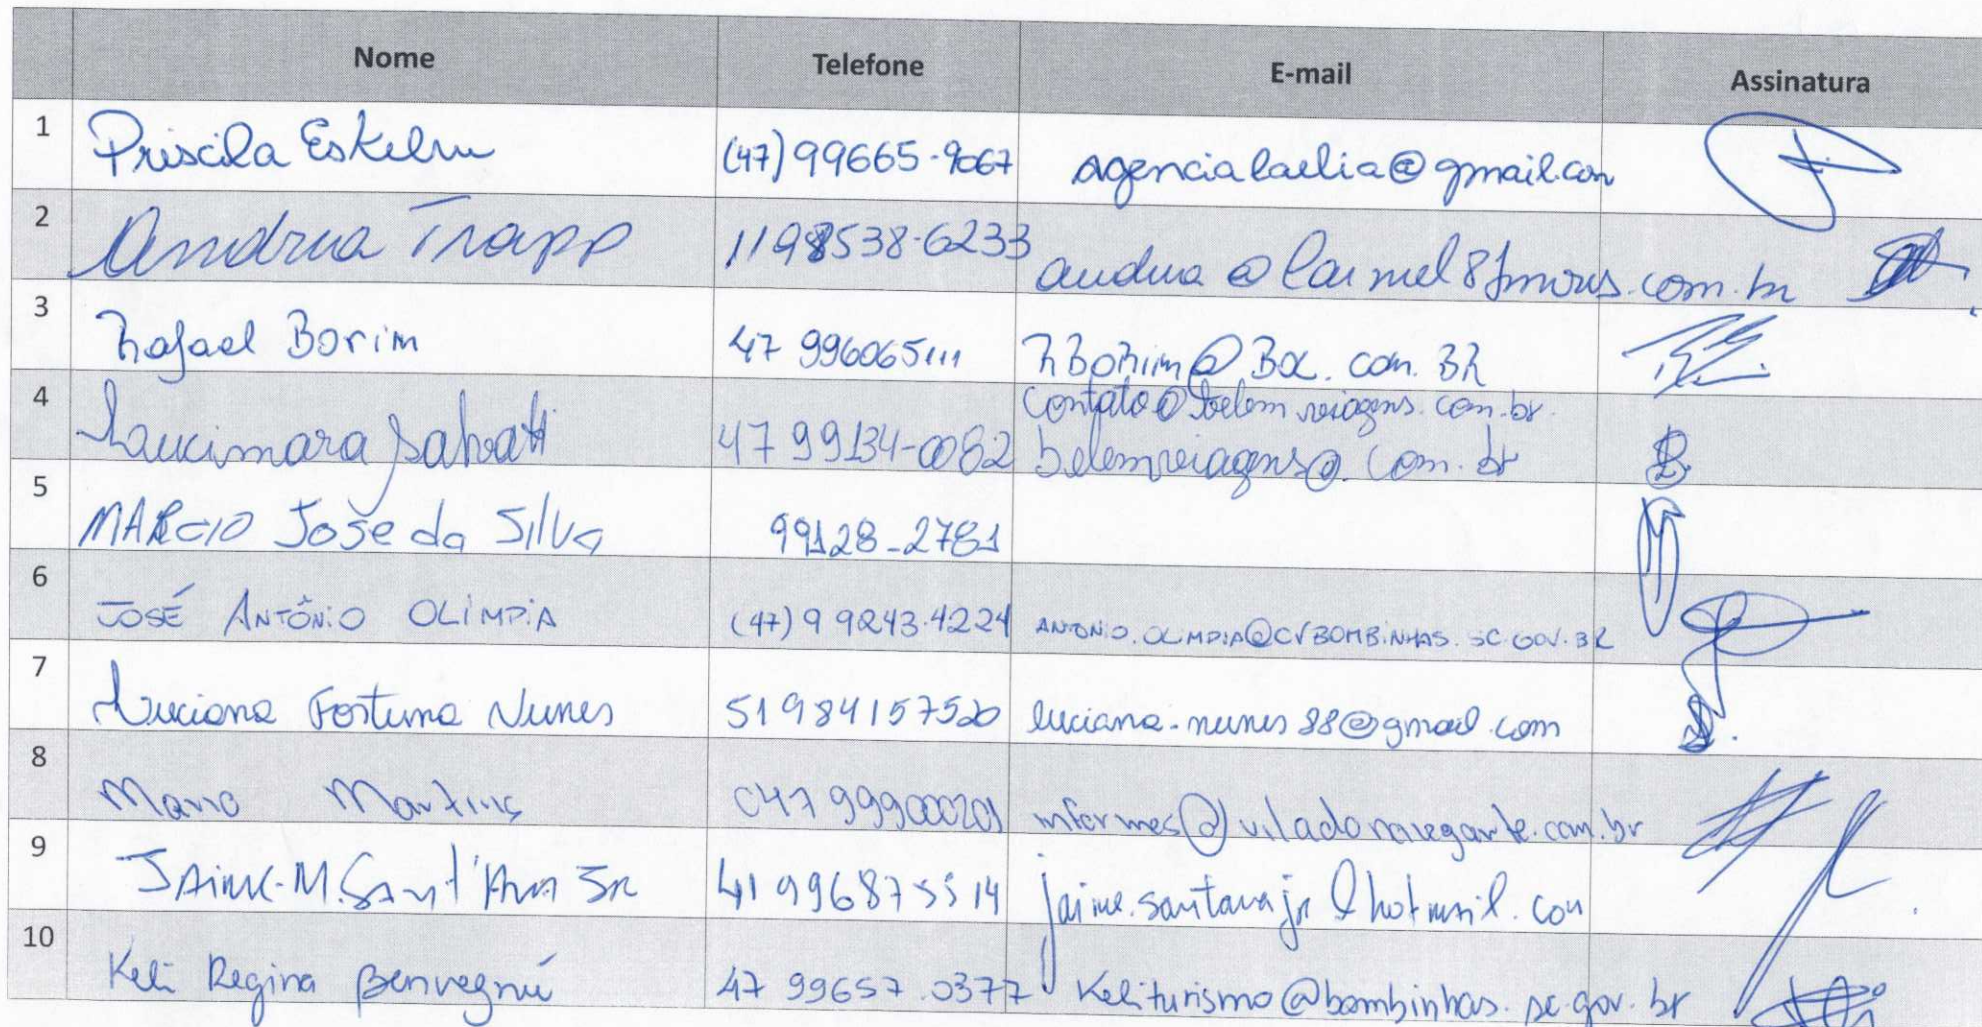 Nome Telefone E-mail Assinatura
1 Priscila Eskelsen (47) 99665-9067 agencialaelia@gmail.com
2 Andrea Trapp 11 98538-6233 andrea@
3 Rafael Borim 47 996065111 RBORim@BOX.com.BR
4 Lucimara Salvatti 47 99134-0082 contato@belemviagens.com.br.
belemviagens@.com.br
5 MARCIO José da Silva 99128-2781
6 JOSÉ ANTÔNIO OLIMPIA (47) 9 9243.4224 ANTONIO.OLIMPIA@CVBOMBINHAS.SC.GOV.BR
7 Luciana Fortuna Nunes 51 984157520 luciana-nunes88@gmail.com
8 Mario Martins 047 999000201 informes@viladonavegante.com.br
9 JAime-M.Sant'Ana JR 41 996875514 jaime.santanajr@hotmail.com
10 Keli Regina Benvegnú 47 99657.0377 keliturismo@bombinhas.sc.gov.br